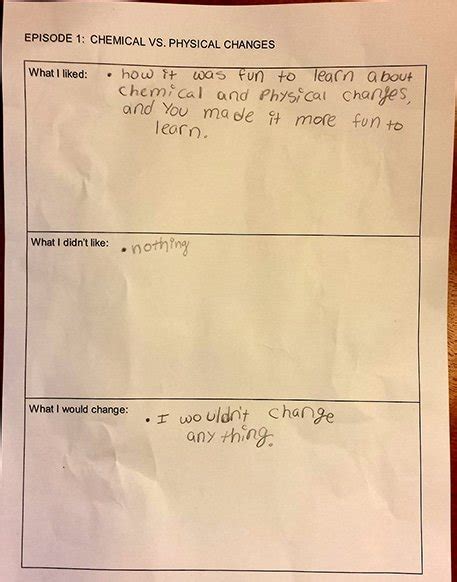 EPISODE 1: CHEMICAL VS. PHYSICAL CHANGES
What I liked: • how it was fun to learn about
chemical and Physical changes,
and You made it more fun to
learn.
What I didn't like: • nothing
What I would change: • I wouldn't change
any thing.